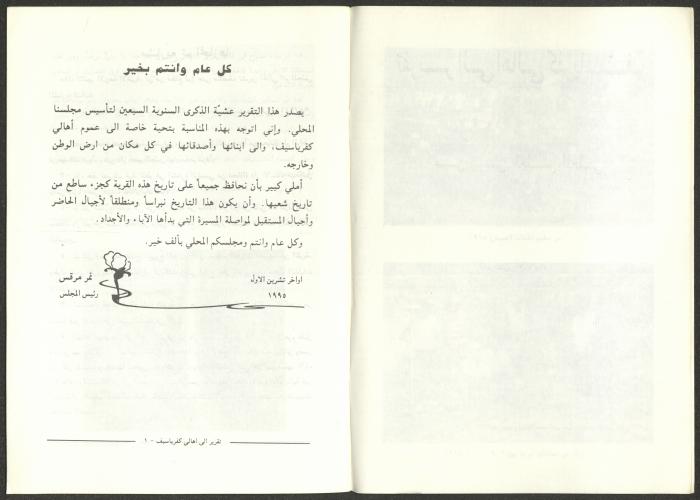 كل عام وانتم بخير
يصدر هذا التقرير عشيّة الذكرى السنوية السبعين لتأسيس مجلسنا
المحلي. وإني اتوجه بهذه المناسبة بتحية خاصة الى عموم أهالي
كفرياسيف، والى ابنائها وأصدقائها في كل مكان من ارض الوطن
وخارجه.
أملي كبير بأن نحافظ جميعاً على تاريخ هذه القرية كجزء ساطع من
تاريخ شعبها. وأن يكون هذا التاريخ نبراساً ومنطلقاً لأجيال الحاضر
وأجيال المستقبل لمواصلة المسيرة التي بدأها الآباء والأجداد.
وكل عام وانتم ومجلسكم المحلي بألف خير.
اواخر تشرين الاول
١٩٩٥
نمر مرقس
رئيس المجلس
تقرير الى اهالي كفرياسيف - ١